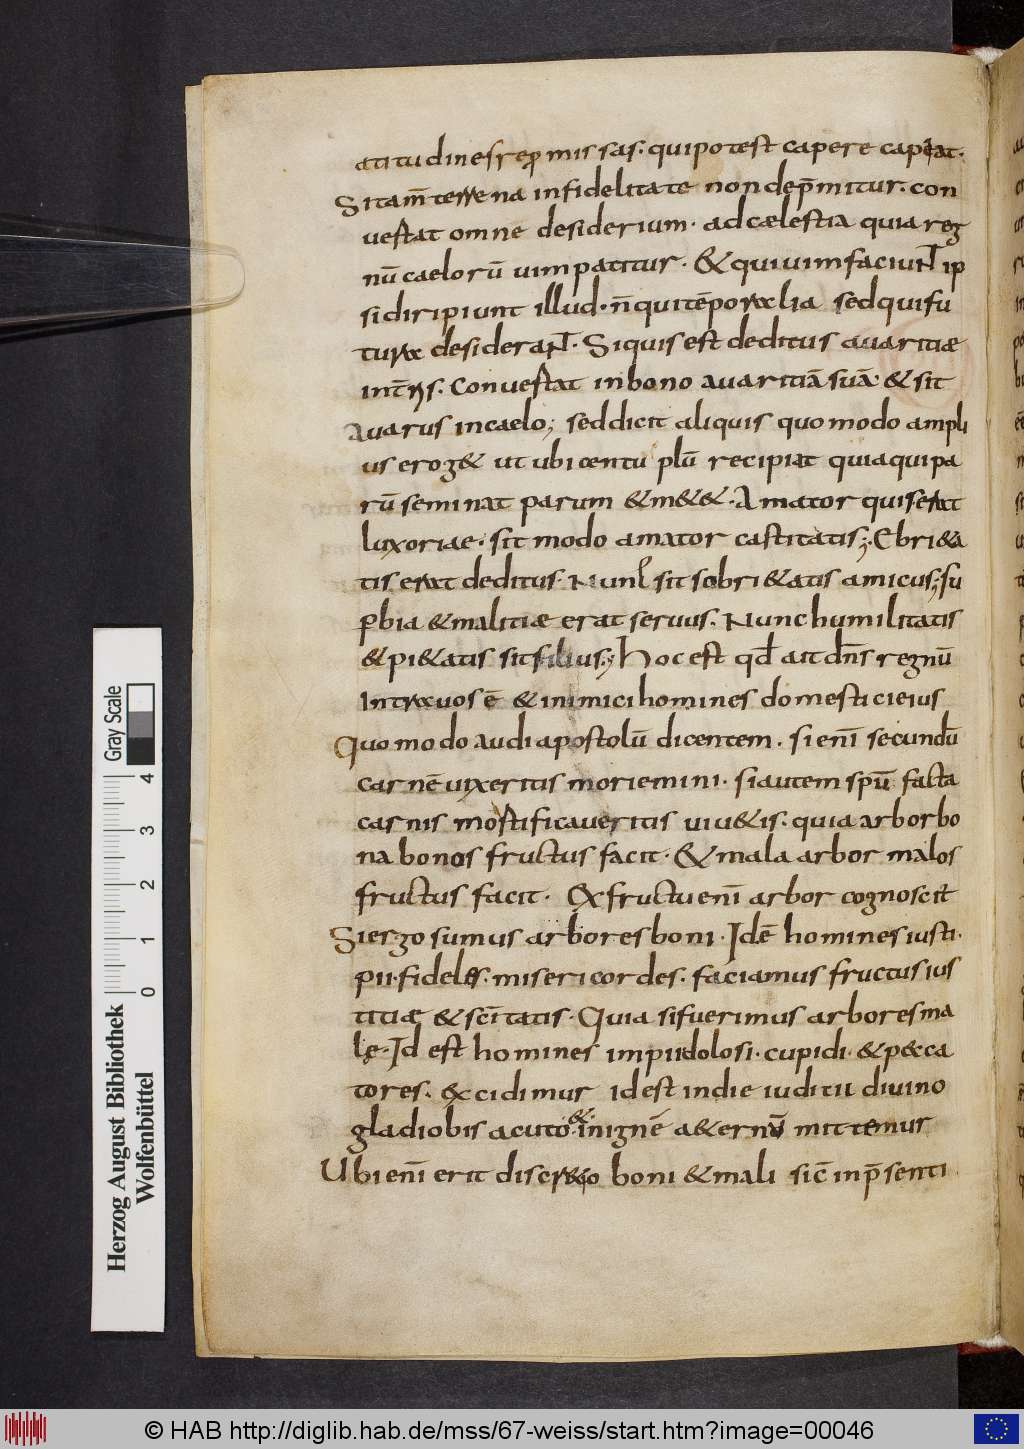 atitudines rep̄missas. qui potest capere capeat.
Si tam̄ terrena infidelitate non dep̄mitur. con
vestat omne desiderium. ad cælestia quia reg
nū caelorū vim patitur. & qui vim faciunt ip
si diripiunt illud. n̄ qui tēporalia sed qui fu
tura desiderant. Si quis est deditus avaritiæ
in t̄ris. Convestat in bono avaritiā suā & sit
avarus in caelo; sed dicit aliquis quomodo ampli
us erog& ut ubi centu plū recipiat quia qui pa
rū seminat parum & m&&. Amator qui serat
luxoriae. sit modo amator castitatis; Ebri&a
tis erat deditus. Nunc sit sobri&atis amicus; su
ꝑbia & malitiæ erat servus. Nunc humilitatis
& pi&atis sit filius; Hoc est qđ ait dn̄s regnū
Intra vos ē & inimici homines domestici eius
Quomodo audi apostolū dicentem. si enī secundū
carnē vixeritis moriemini. si autem spū facta
carnis mostificaveritis viv&is. quia arbor bo
na bonos fructus facit. & mala arbor malos
fructus facit. Ex fructu enī arbor cognoscit
Si ergo sumus arbores boni. Idē homines iusti.
pii. fideles. misericordes. faciamus fructus ius
titiæ & sc̄itatis. Quia si fuerimus arbores ma
lę. Id est homines impii dolosi. cupidi. & pecca
tores. excidimur id est in die iuditii divino
gladio bis acuto. & in ignē a&ernū mittemur
Ubi enī erit discr&io boni & mali sic̄ in p̄senti
Gray Scale
0 1 2 3 4
Herzog August Bibliothek
Wolfenbüttel
© HAB http://diglib.hab.de/mss/67-weiss/start.htm?image=00046